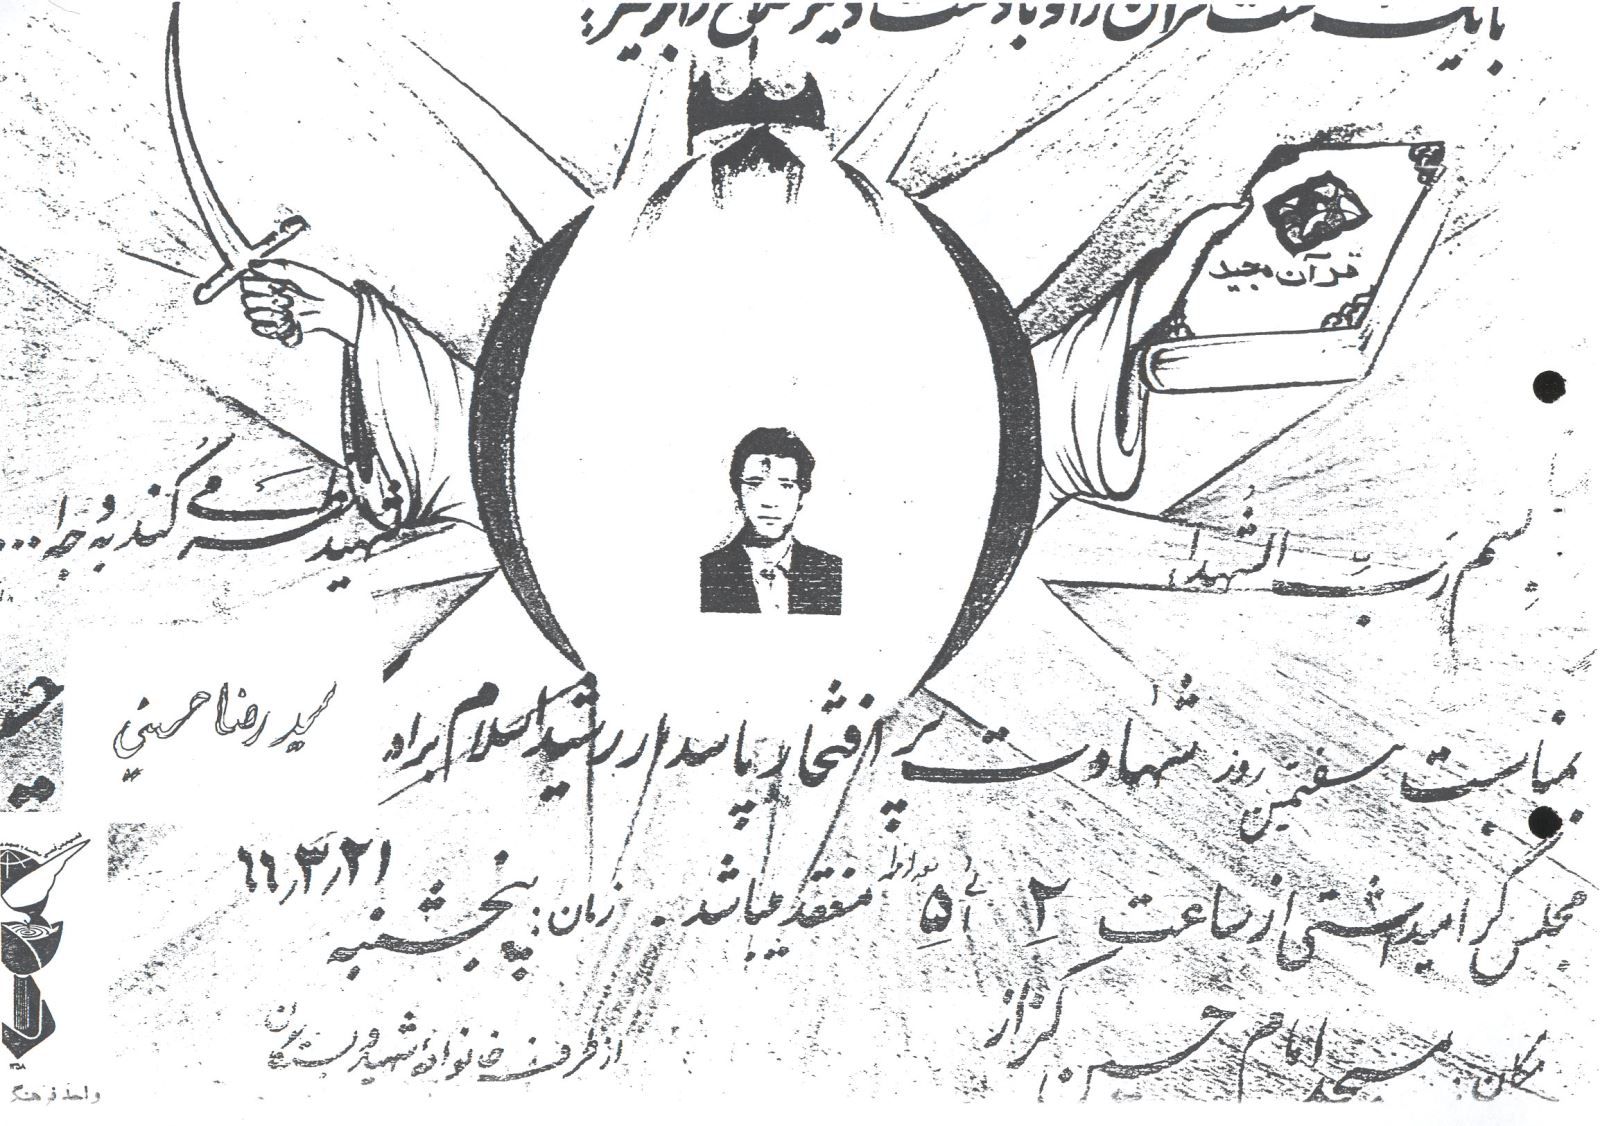 با یک دست قرآن را و با دست دیگر سلاح را برگیر
قرآن مجید
شهید نظر می‌کند به وجه ا...
بسم رب الشهداء
بمناسبت هفتمین روز شهادت پر افتخار پاسدار رشید اسلام برادر
سید رضا حسینی
مجلس گرامیداشتی از ساعت ۲ الی ۵ بعدازظهر منعقد میباشد. زمان: پنجشنبه ۶۶٫۳٫۲۱
مکان: مسجد امام حسین کرازان
از طرف: خانواده شهید و دوستان
واحد فرهنگی